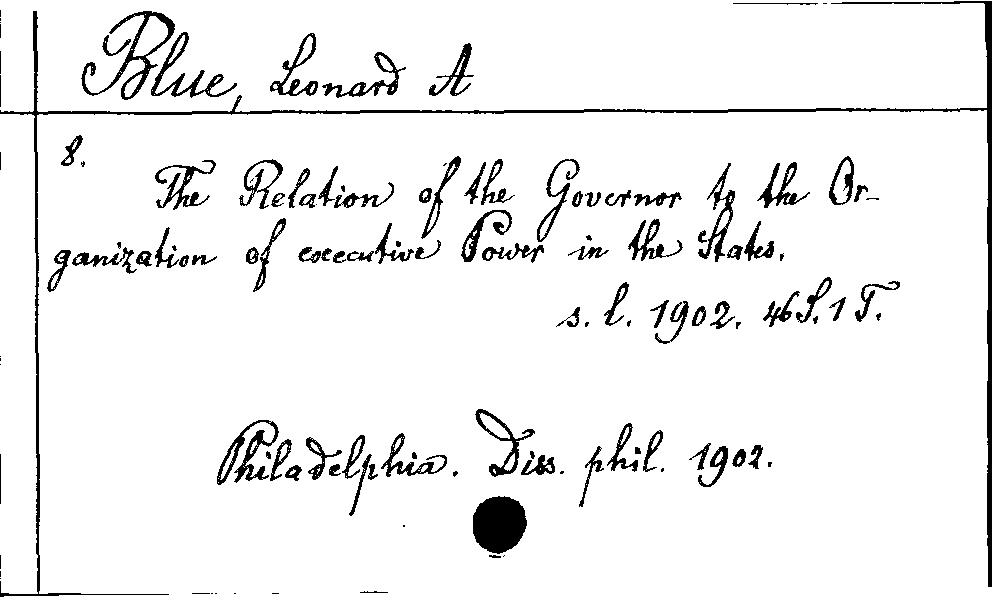 Blue, Leonard A
8.
The Relation of the Governor to the Or-
ganization of executive Power in the States.
s. l. 1902. 46 S. 1 T.
Philadelphia. Diss. phil. 1902.